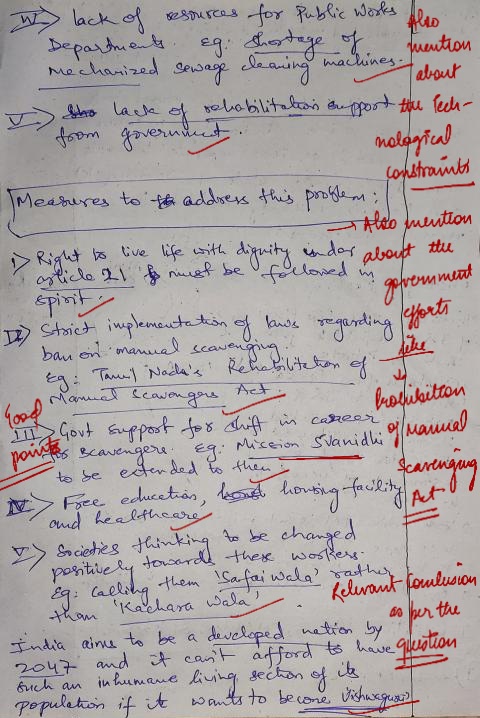 IV) lack of resources for Public Works
Departments. eg: shortage of
Mechanized sewage cleaning machines.
V) lack of rehabilitation support
from government.
Also
mention
about
the Tech-
nological
constraints
Measures to address this problem:
→ Also mention
about the
government
efforts
like
↓
Prohibition
of Manual
Scavenging
Act
I) Right to live life with dignity under
article 21 must be followed in
spirit.
II) Strict implementation of laws regarding
ban on manual scavenging
Eg: Tamil Nadu's Rehabilitation of
Manual Scavengers Act.
Good
points
III) Govt support for shift in career
for scavengers. eg. Mission Svanidhi
to be extended to them
IV) Free education, housing facility
and healthcare
V) Societies thinking to be changed
positively towards these workers.
Eg: calling them 'Safai wala' rather
than 'Kachara wala'.
Relevant Conclusion
as per the
question
India aims to be a developed nation by
2047 and it can't afford to have
such an inhumane living section of its
population if it wants to become Vishwaguru